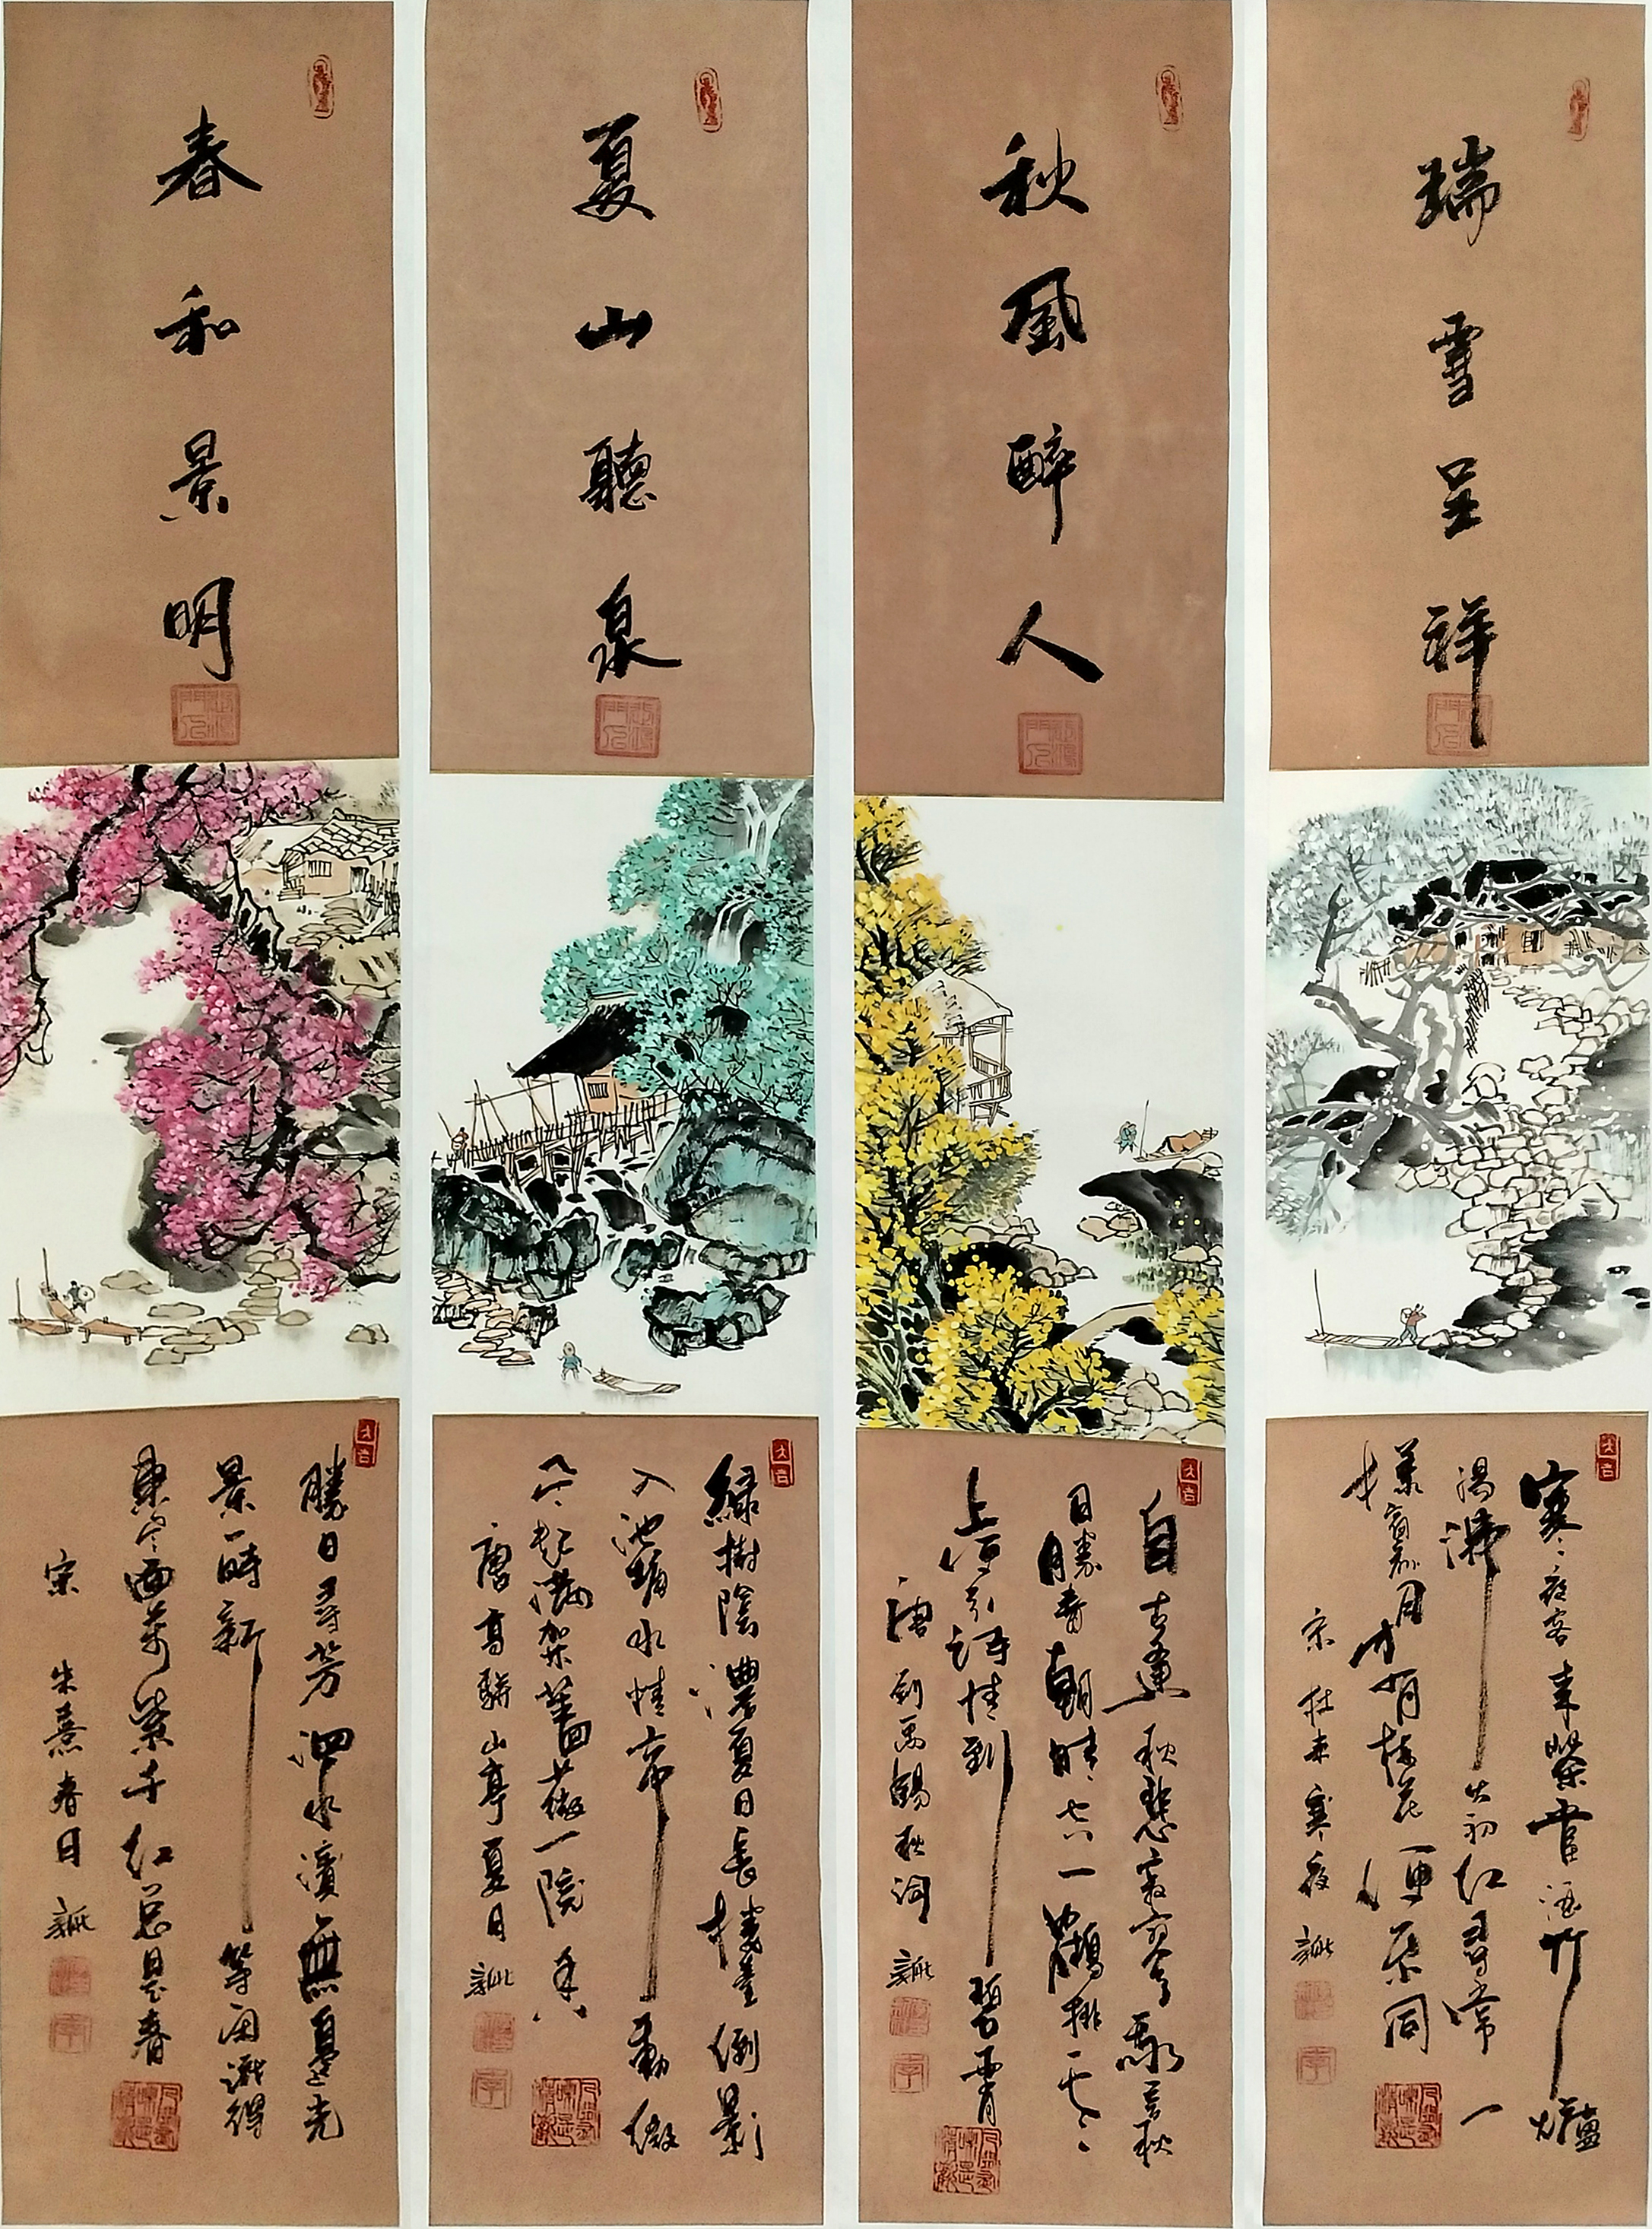 春和景明
勝日尋芳泗水濱無邊光
景一時新等閑識得
東風面萬紫千紅總是春
宋 朱熹春日
大吉
夏山聽泉
綠樹陰濃夏日長樓臺倒影
入池塘水精帘動微
風起滿架薔薇一院香
唐高駢山亭夏日
大吉
秋風醉人
自古逢秋悲寂寥我言秋
日勝春朝晴空一鶴排雲
上便引詩情到碧霄
唐劉禹錫秋詞
大吉
瑞雪呈祥
寒夜客來茶當酒竹爐
湯沸火初紅尋常一
樣窗前月才有梅花便不同
宋杜耒寒夜
大吉